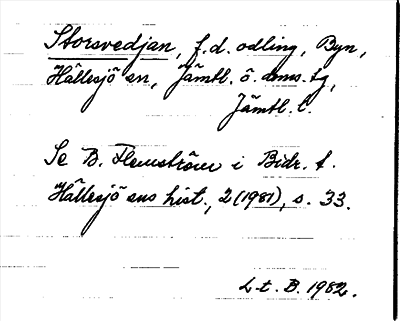 Storsvedjan, f.d. odling, Byn,
Hällesjö sn, Jämtl. ö. dms. tg,
Jämtl. l.
Se B. Flemström i Bidr. t.
Hällesjö sns hist., 2 (1981), s. 33.
L. t. B. 1982.